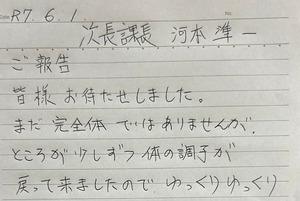 R7.6.1.
次長課長 河本準一
ご報告
皆様 お待たせしました。
まだ完全体ではありませんが、
ところが少しずつ体の調子が
戻って来ましたので ゆっくりゆっくり